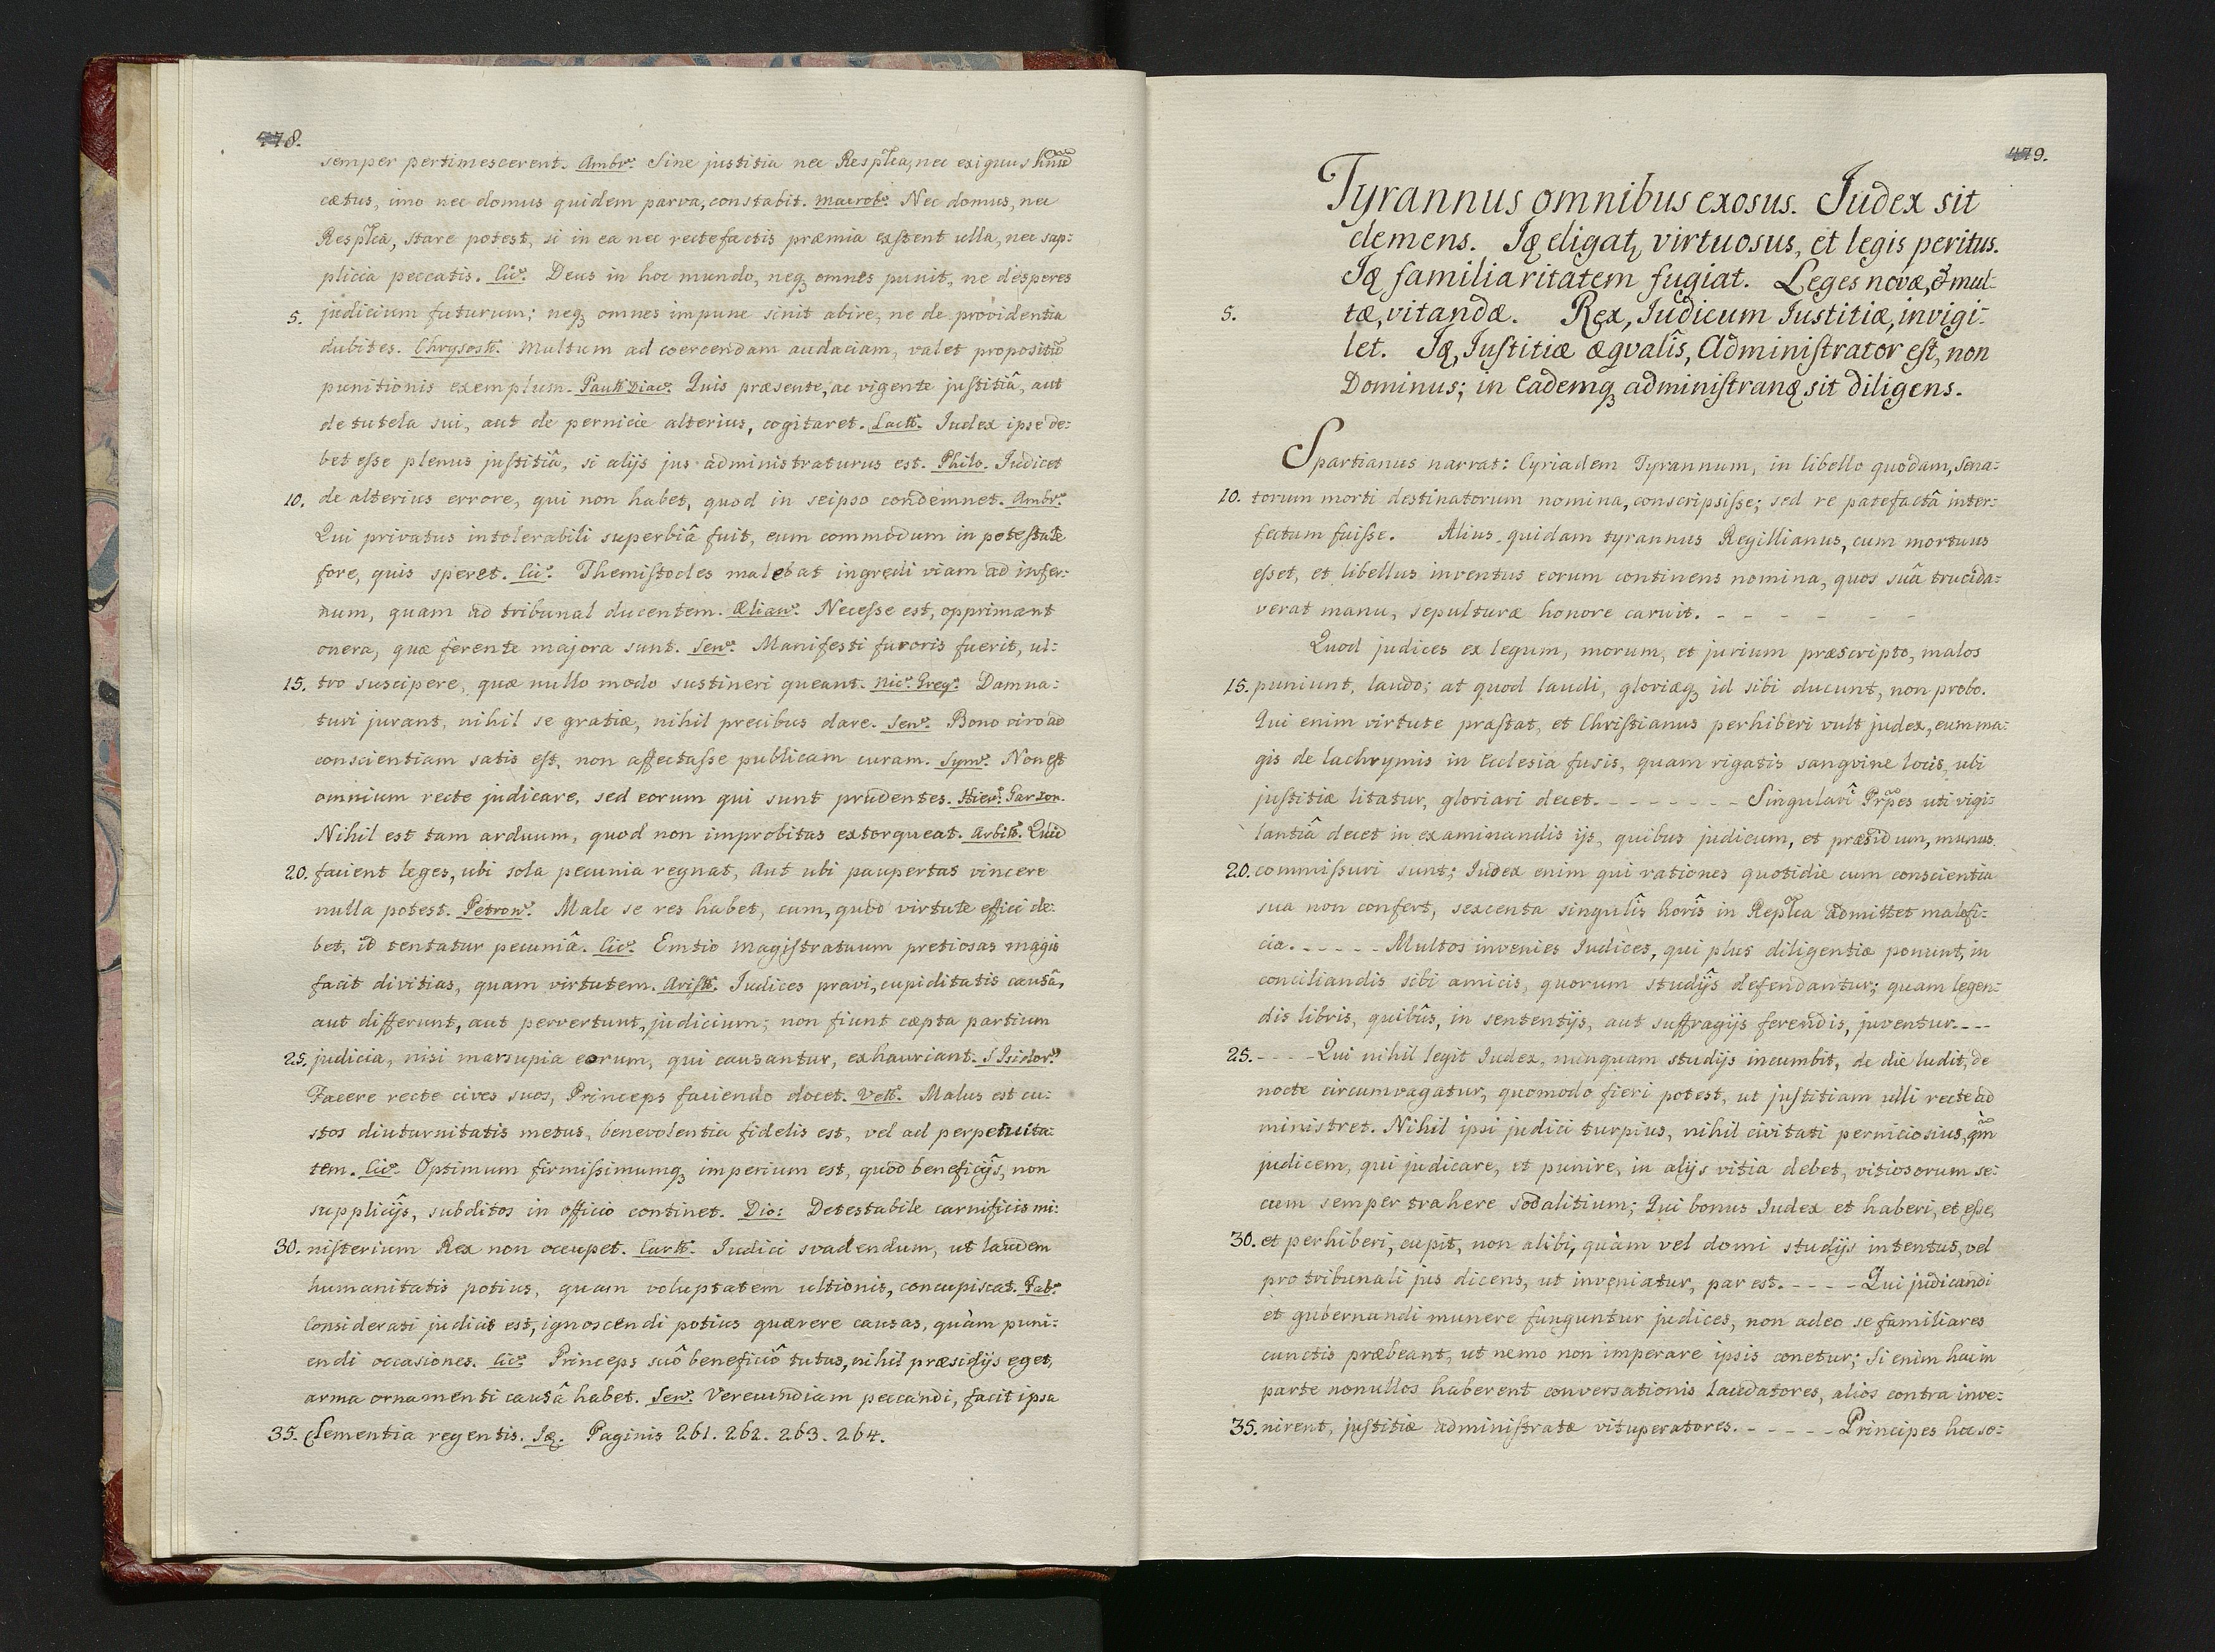 478.
semper pertimescerent. Ambr. Sine justitia nec Resp͠lca, nec exiguus hnũ
cætus, imo nec domus quidem parva, constabit. Macrob. Nec domus, nec
Resp͠lca, stare potest, si in ea nec recte factis præmia exstent ulla, nec sup:
plicia peccatis. Cic. Deus in hoc mundo, neqꝫ omnes punit, ne desperes
5. judicium futurum; neqꝫ omnes impune sinit abire, ne de providentia
dubites. Chrysost. Multum ad coercendam audaciam, valet propositũ
punitionis exemplum. Paull Diac. Quis præsente, ac vigente justitiâ, aut
de tutela sui, aut de pernicie alterius, cogitaret. Lactt. Iudex ipse de:
bet esse plenus justitiâ, si alijs jus administraturus est. Philo. Iudicet
10. de alterius errore, qui non habet, quod in seipso condemnet. Ambr.
Qui privatus intolerabili superbiâ fuit, eum commodum in potestate
fore, quis speret. Cic. Themistocles malebat ingredi viam ad infer:
num, quam ad tribunal ducentem. Ælian. Necesse est, opprimant
onera, quæ ferente majora sunt. Sen. Manifesti furoris fuerit, ul:
15. tro suscipere, quæ nullo modo sustineri queant. Nic. Greg. Damna:
turi jurant, nihil se gratiæ, nihil precibus dare. Sen. Bono viro ad
conscientiam satis est, non affectasse publicam curam. Sym. Non est
omnium recte judicare, sed eorum qui sunt prudentes. Hier. Garzon.
Nihil est tam arduum, quod non improbitas extorqueat. Arbitt. Quid
20. facient leges, ubi sola pecunia regnat, Aut ubi paupertas vincere
nulla potest. Petron. Male se res habet, cum, quod virtute effici de:
bet, id tentatur pecuniâ. Cic. Emtio Magistratuum pretiosas magis
facit divitias, quam virtutem. Aristt. Iudices pravi, cupiditatis causâ,
aut differunt, aut pervertunt, judicium; non fiunt cæpta partium
25. judicia, nisi marsupia eorum, qui causantur, exhauriant. S Isidor.
Facere recte cives suos, Princeps faciendo docet. Vell. Malus est cu:
stos diuturnitatis metus, benevolentia fidelis est, vel ad perpetuita:
tem. Cic. Optimum firmissimumqꝫ imperium est, quod beneficijs, non
supplicijs, subditos in officio continet. Dio: Detestabile carnificis mi:
30. nisterium Rex non occupet. Curtt. Iudici svadendum, ut laudem
humanitatis potius, quam voluptatem ultionis, concupiscat. Fab.
Considerati judicis est, ignoscendi potius quærere causas, quàm puni:
endi occasiones. Cic. Princeps suô beneficiô tutus, nihil præsidijs eget,
arma ornamenti causâ habet. Sen. Verecundiam peccandi, facit ipsa
35. Clementia regentis. Iꝗ. Paginis 261. 262. 263. 264.
479.
Tyrannus omnibus exosus. Iudex sit
clemens. Iꝗ eligatꝫ virtuosus, et legis peritus.
Iꝗ familiaritatem fugiat. Leges novæ, & mul:
5. tæ, vitandæ. Rex, Iudicum Iustitiæ, invigi:
let. Iꝗ, Iustitiæ æqvalis, Administrator est, non
Dominus; in Eademqꝫ administranꝗ sit diligens.
Spartianus narrat: Cyriadem Tyrannum, in libello quodam, Sena:
10. torum morti destinatorum nomina, conscripsisse; sed re patefactâ inter:
fectum fuisse. Alius quidam tyrannus Regillianus, cum mortuus
esset, et libellus inventus eorum continens nomina, quos suâ trucida:
verat manu, sepulturæ honore caruit. - - - - - -
Quod judices ex legum, morum, et jurium præscripto, malos
15. puniunt, laudo; at quod laudi, gloriæqꝫ id sibi ducunt, non probo.
Qui enim virtute præstat, et Christianus perhiberi vult judex, eum ma:
gis de lachrymis in Ecclesia fusis, quam rigatis sangvine locis, ubi
justitiæ litatur, gloriari decet. - - - - - - - Singulari Prpes uti vigi:
lantiâ decet in examinandis ijs, quibus judicum, et præsidum, munus
20. commissuri sunt; Iudex enim qui rationes quotidie cum conscientia
sua non confert, sexcenta singulis horis in Rep͠lca admittet malefi:
cia. - - - - - Multos invenies Iudices, qui plus diligentiæ ponunt, in
conciliandis sibi amicis, quorum studijs defendantur; quam legen:
dis libris, quibus, in sententijs, aut suffragijs ferendis, juventur. - - -
25. - - - - Qui nihil legit Iudex, nunquam studijs incumbit, de die ludit, de
nocte circumvagatur, quomodo fieri potest, ut justitiam ulli recte ad
ministret. Nihil ipsi judici turpius, nihil civitati perniciosius, qm̃
judicem, qui judicare, et punire, in alijs vitia debet, vitiosorum se:
cum semper trahere sodalitium; Qui bonus Iudex et haberi, et esse,
30. et perhiberi, cupit, non alibi, quàm vel domi studijs intentus, vel
pro tribunali jus dicens, ut inveniatur, par est. - - - - Qui judicandi
et gubernandi munere funguntur judices, non adeo se familiares
cunctis præbeant, ut nemo non imperare ipsis conetur; Si enim hac in
parte nonullos haberent conversationis laudatores, alios contra inve:
35. nirent, justitiæ administratæ vituperatores. - - - - - Principes hoc so: